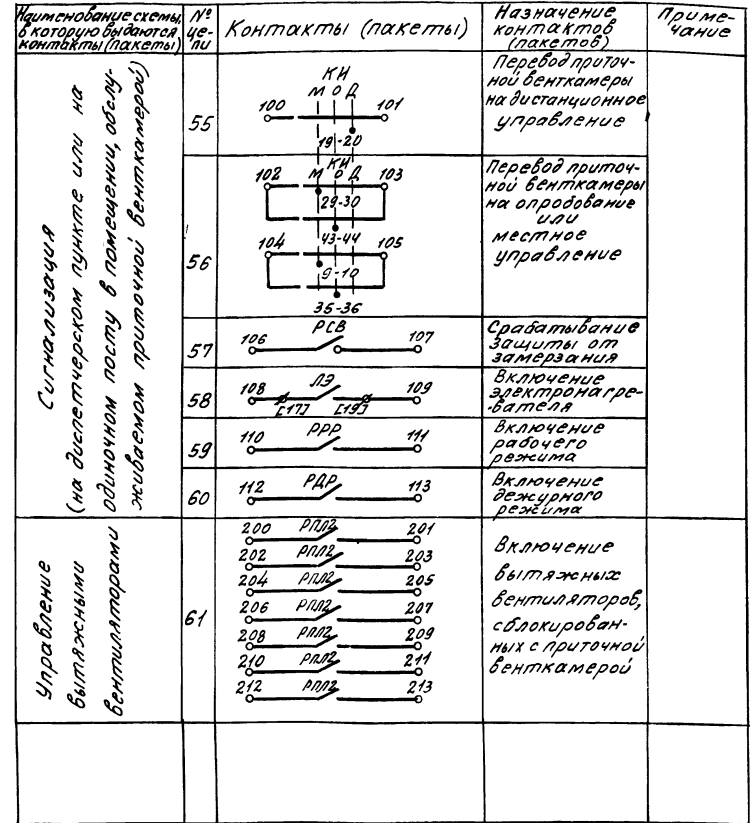 Наименование схемы,
в которую выдаются
контакты (пакеты)
№
це-
пи
Контакты (пакеты)
Назначение
контактов
(пакетов)
Приме-
чание
Сигнализация
(на диспетчерском пункте или на
одиночном посту в помещении, обслу-
живаемом приточной венткамерой)
55
КИ
М О Д
100 101
19-20
Перевод приточ-
ной венткамеры
на дистанционное
управление
56
КИ
102 М О Д 103
29-30
43-44
104 105
9-10
35-36
Перевод приточ-
ной венткамеры
на опробование
или
местное
управление
57
106 РСВ 107
Срабатывание
защиты от
замерзания
58
108 ЛЭ 109
[17] [19]
Включение
электронагре-
вателя
59
110 РРР 111
Включение
рабочего
режима
60
112 РДР 113
Включение
дежурного
режима
Управление
вытяжными
вентиляторами
61
200 РПЛ2 201
202 РПЛ2 203
204 РПЛ2 205
206 РПЛ2 207
208 РПЛ2 209
210 РПЛ2 211
212 РПЛ2 213
Включение
вытяжных
вентиляторов,
сблокирован-
ных с приточной
венткамерой